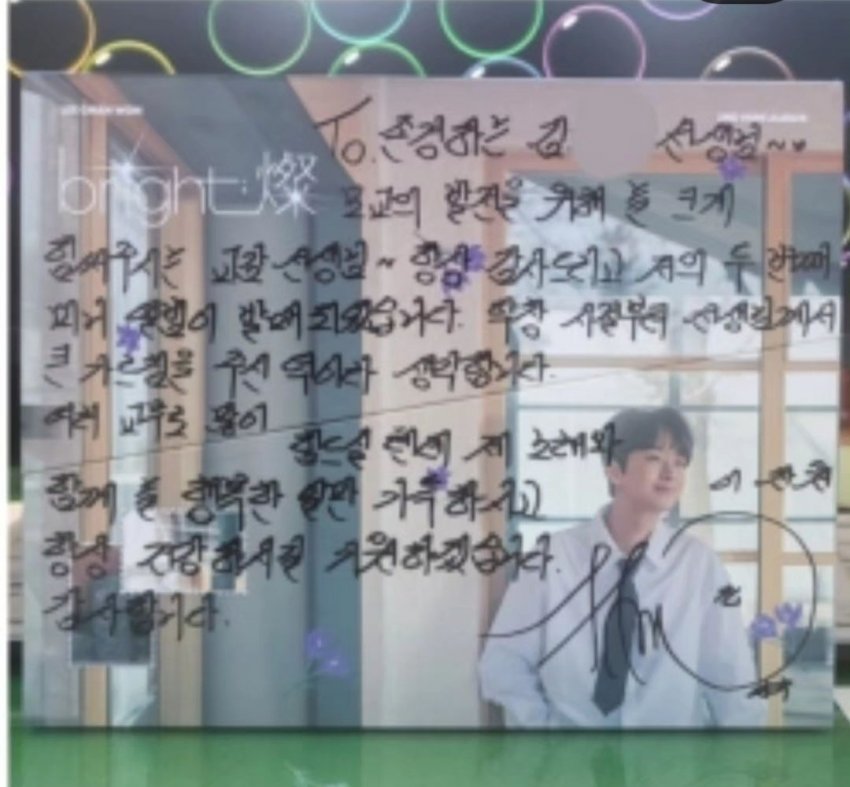 LEE CHAN WON
bright;燦
To. 존경하는 김 선생님~♥
모교의 발전을 위해 늘 크게
힘써주시는 교감 선생님~ 항상 감사드리고 저의 두 번째
미니 앨범이 발매되었습니다. 학창 시절부터 선생님께서
큰 가르침을 주신 덕이라 생각합니다.
여러 교무로 많이
힘드실 텐데 제 노래와
함께 늘 행복한 일만 가득하시고
항상 건강하시길 기원하겠습니다.
감사합니다.
이찬원